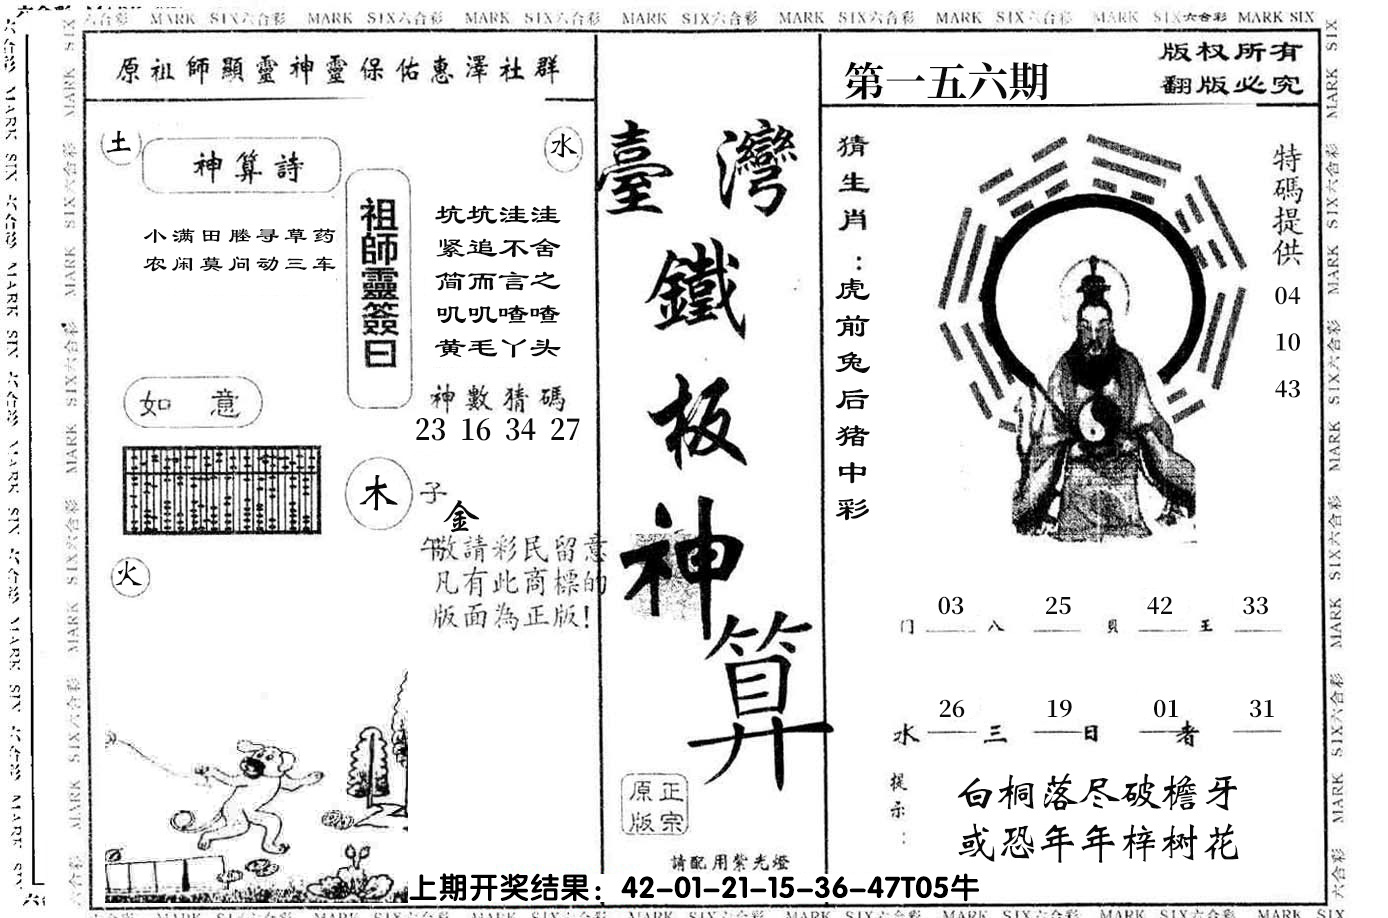 MARK SIX六合彩 MARK SIX六合彩 MARK SIX六合彩 MARK SIX六合彩 MARK SIX六合彩 MARK SIX六合彩 MARK SIX六合彩 MARK SIX
原祖師顯靈神靈保佑惠澤社群
土
神算詩
水
小满田塍寻草药
农闲莫问动三车
祖師靈簽曰
坑坑洼洼
紧追不舍
简而言之
叽叽喳喳
黄毛丫头
神數猜碼
23 16 34 27
如意
木
子
金
午
敬請彩民留意
凡有此商標的
版面為正版!
火
臺灣
鐵
板
神
算
正宗
原版
請配用紫光燈
第一五六期
版权所有
翻版必究
猜生肖:虎前兔后猪中彩
特碼提供
04
10
43
03 25 42 33
门 八 貝 王
26 19 01 31
水 三 日 者
提示:
白桐落尽破檐牙
或恐年年梓树花
上期开奖结果：42-01-21-15-36-47T05牛